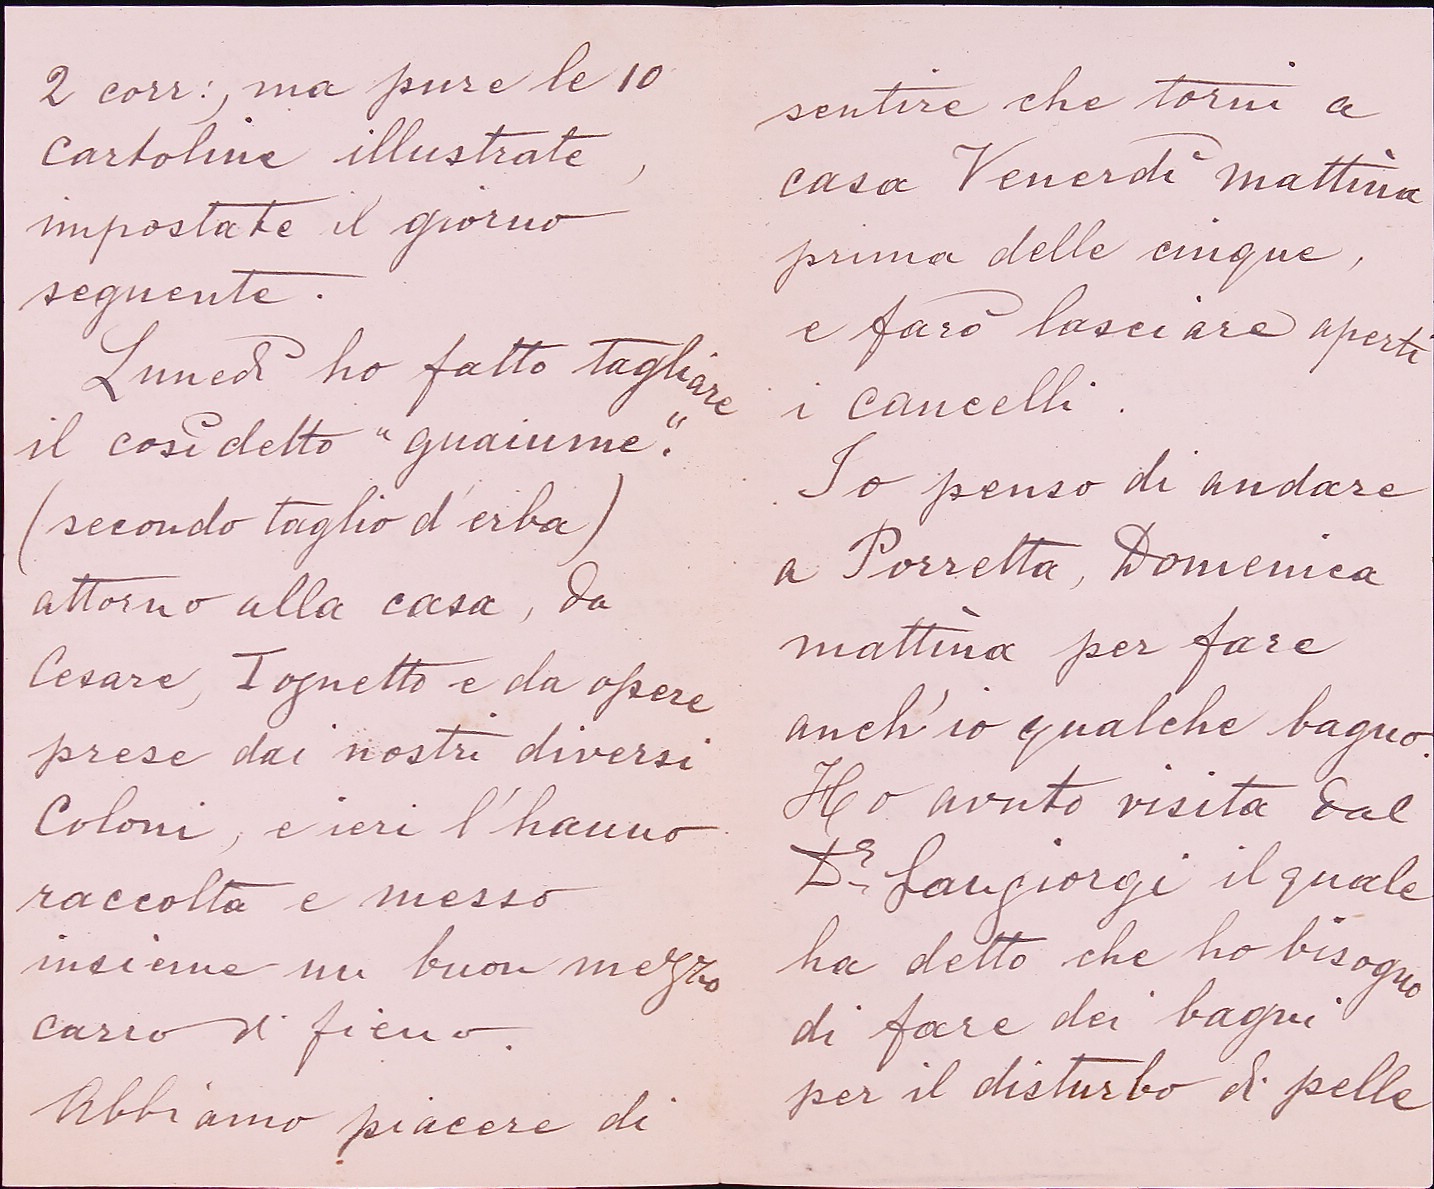 2 corr:, ma pure le 10
Cartoline illustrate,
impostate il giorno
seguente.
Lunedì ho fatto tagliare
il cosìdetto "guaiume".
(secondo taglio d'erba)
attorno alla casa, da
Cesare, Tognetto e da opere
prese dai nostri diversi
Coloni, e ieri l'hanno
raccolta e messo
insieme un buon mezzo
carro di fieno.
Abbiamo piacere di
sentire che torni a
casa Venerdì mattina
prima delle cinque,
e farò lasciare aperti
i cancelli.
Io penso di andare
a Porretta, Domenica
mattina per fare
anch'io qualche bagno.
Ho avuto visita dal
Dr. Sangiorgi il quale
ha detto che ho bisogno
di fare dei bagni
per il disturbo di pelle